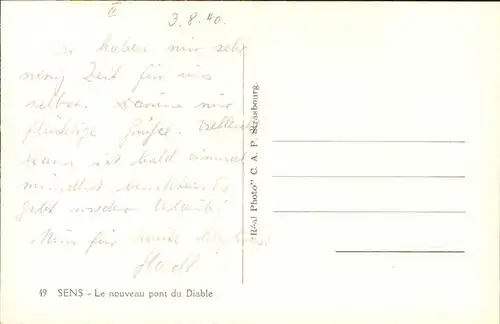 II
3.8.40.
haben wir sehr
wenig Zeit für uns
selbst. Darum nur
flüchtige Grüße. Vielleicht
kann ich bald einmal
mündlich
gibt wieder Urlaub!
Nun für heute
49 SENS - Le nouveau pont du Diable
"Réal Photo" C. A. P. Strasbourg.